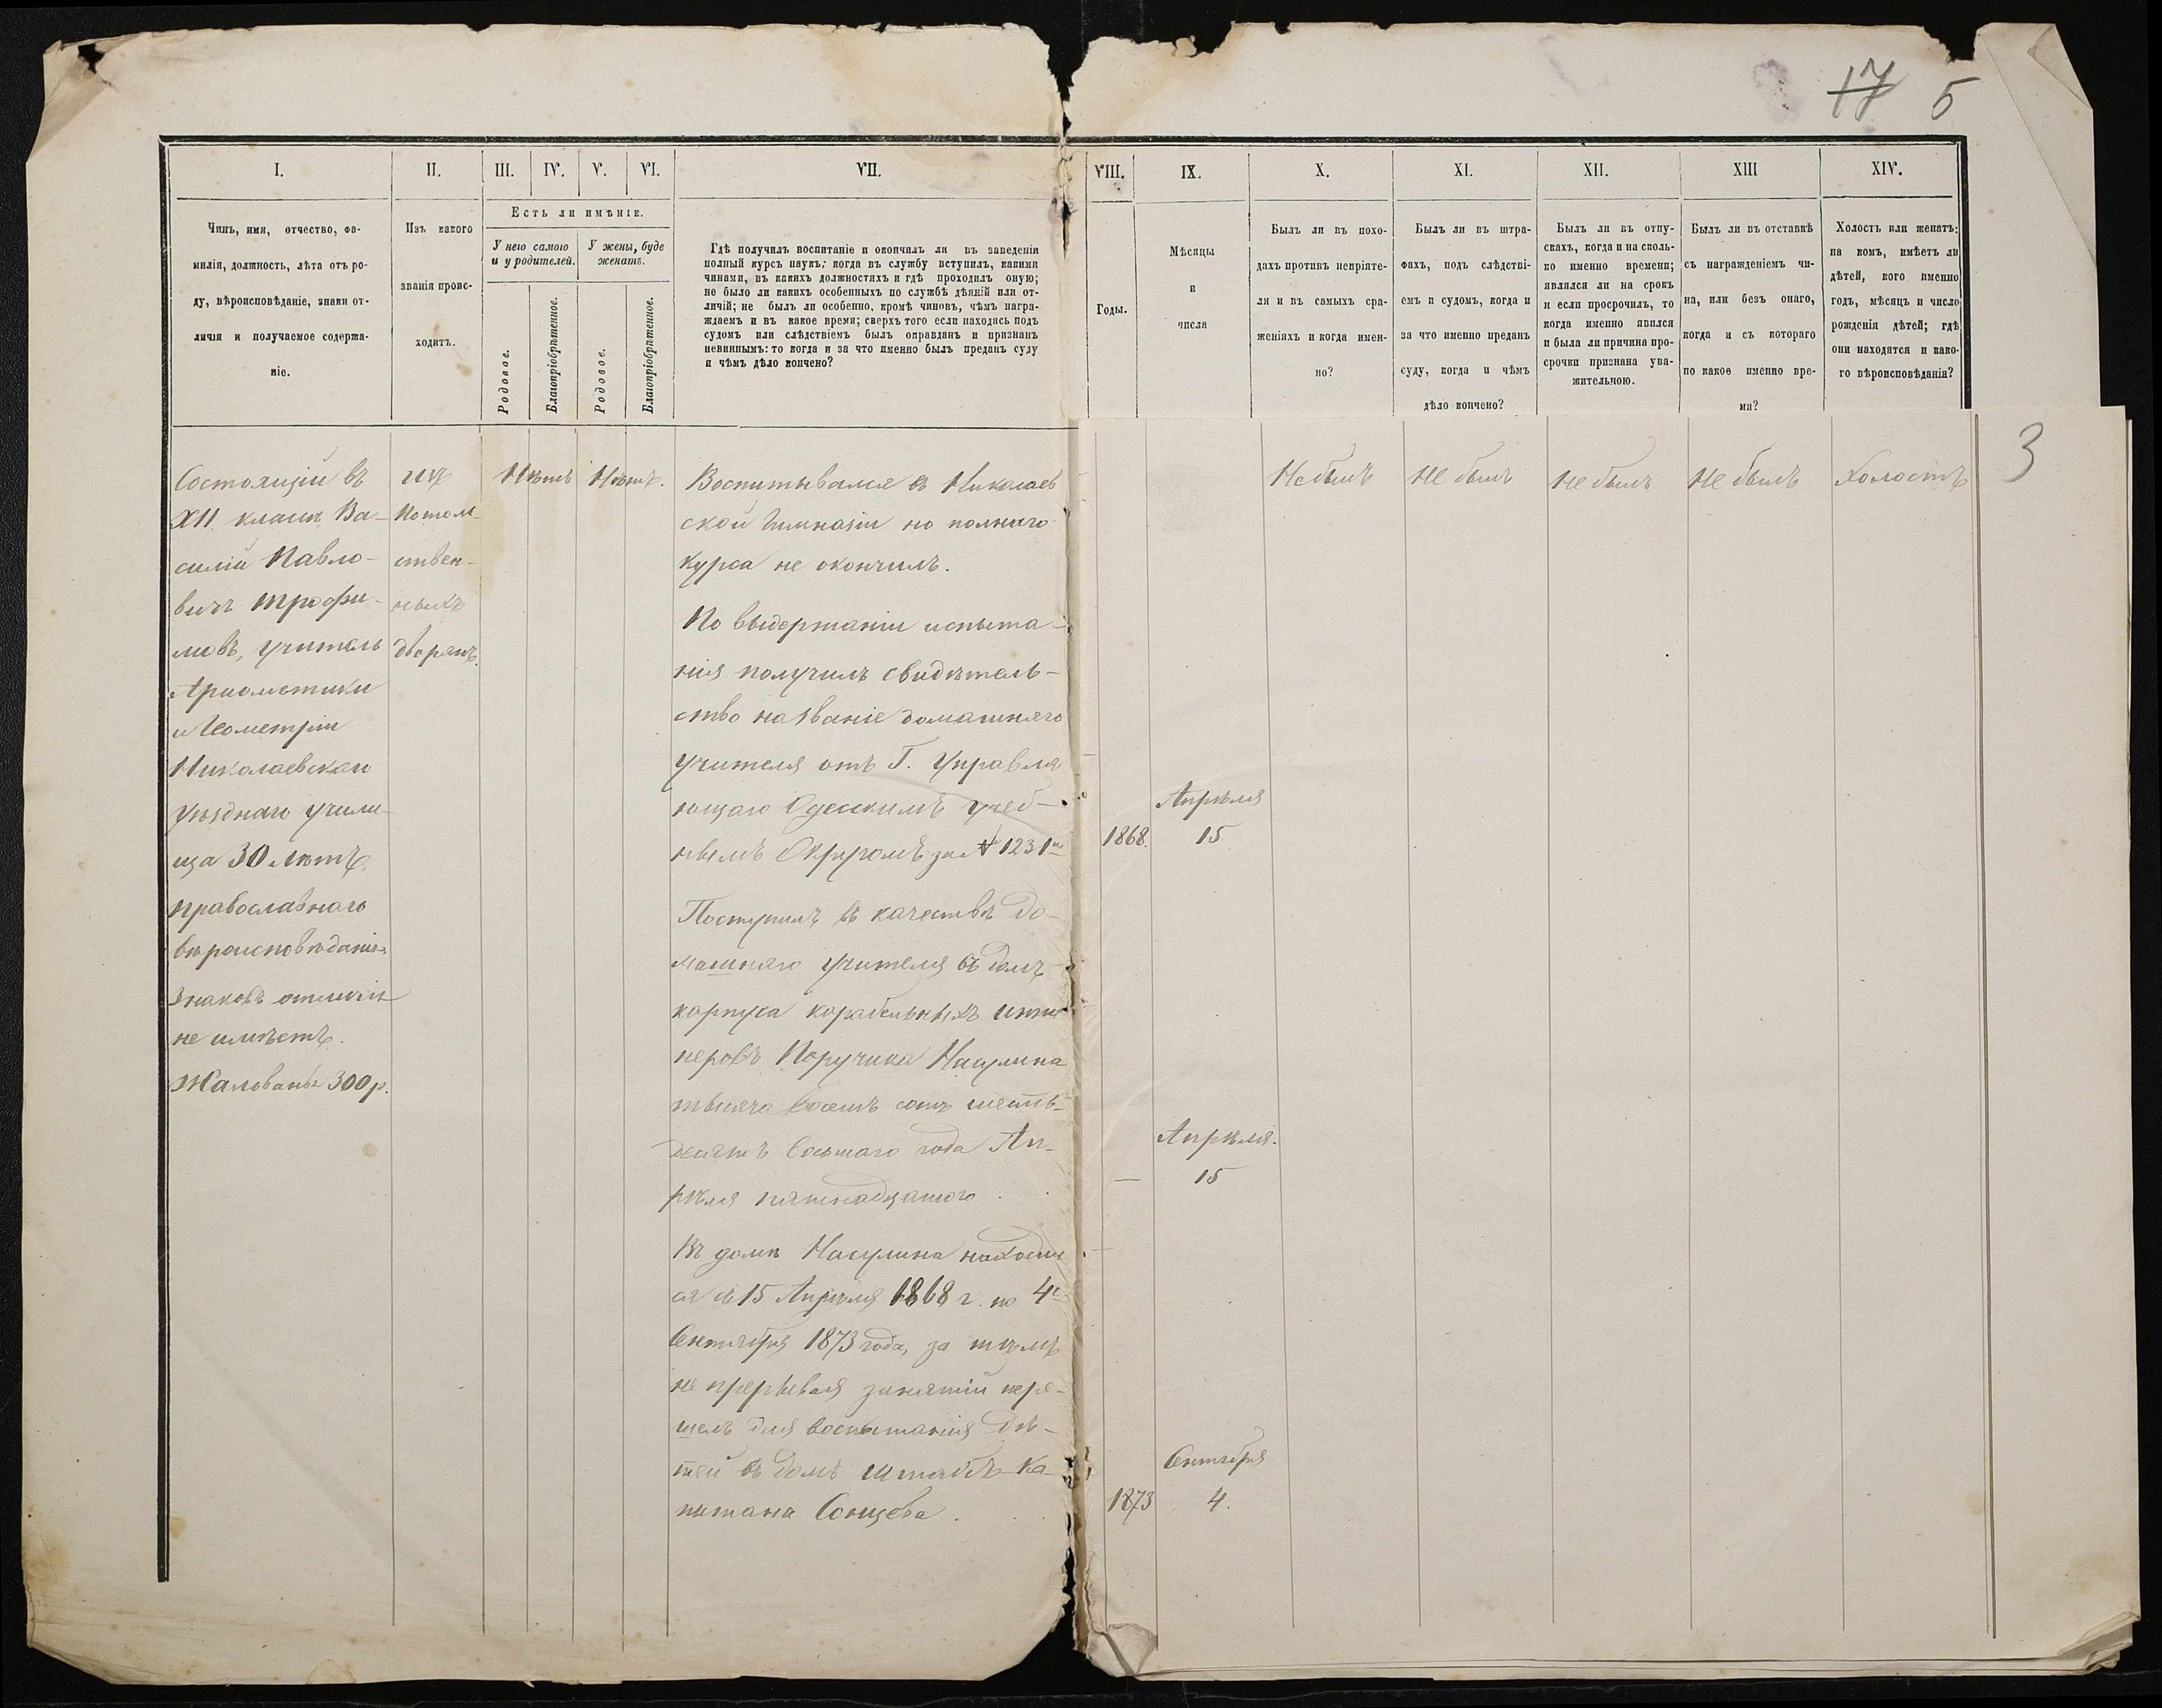 17 5
I. II. III. IV. V. VI. VII. VIII. IX. X. XI. XII. XIII XIV.
Чинъ, имя, отчество, фа-
милія, должность, лѣта отъ ро-
ду, вѣроисповѣданіе, знаки от-
личія и получаемое содержа-
ніе.
Изъ какого
званія проис-
ходитъ.
Есть ли имѣніе.
У него самого
и у родителей.
У жены, буде
женатъ.
Родовое.
Благопріобрѣтенное.
Родовое.
Благопріобрѣтенное.
Гдѣ получилъ воспитаніе и окончилъ ли въ заведеніи
полный курсъ наукъ; когда въ службу вступилъ, какими
чинами, въ какихъ должностяхъ и гдѣ проходилъ оную;
не было ли какихъ особенныхъ по службѣ дѣяній или от-
личій; не былъ ли особенно, кромѣ чиновъ, чѣмъ награ-
ждаемъ и въ какое время; сверхъ того если находясь подъ
судомъ или слѣдствіемъ былъ оправданъ и признанъ
невиннымъ: то когда и за что именно былъ преданъ суду
и чѣмъ дѣло кончено?
Годы.
Мѣсяцы
и
числа
Былъ ли въ похо-
дахъ противъ непріяте-
ля и въ самыхъ сра-
женіяхъ и когда имен-
но?
Былъ ли въ штра-
фахъ, подъ слѣдстві-
емъ и судомъ, когда и
за что именно преданъ
суду, когда и чѣмъ
дѣло кончено?
Былъ ли въ отпу-
скахъ, когда и на сколь-
ко именно времени;
являлся ли на срокъ
и если просрочилъ, то
когда именно явился
и была ли причина про-
срочки признана ува-
жительною.
Былъ ли въ отставкѣ
съ награжденіемъ чи-
на, или безъ онаго,
когда и съ котораго
по какое именно вре-
мя?
Холостъ или женатъ:
на комъ, имѣетъ ли
дѣтей, кого именно
годъ, мѣсяцъ и число
рожденія дѣтей; гдѣ
они находятся и како-
го вѣроисповѣданія?
Состоящій въ
XII классѣ Ва-
силій Павло-
вичъ Трофи-
мовъ, учитель
Ариѳметики
и Геометріи
Николаевскаго
уѣзднаго учили-
ща 30 лѣтъ.
православнаго
вѣроисповѣданія
Знаковъ отличія
не имѣетъ.
Жалованья 300 р.
изъ
потом-
ствен-
ныхъ
дворянъ.
Нѣтъ Нѣтъ.
Воспитывался въ Николаев
ской Гимназіи но полнаго
курса не окончилъ.
По выдержаніи испыта-
нія получилъ свидѣтель-
ство на званіе домашняго
учителя отъ Г. Управля
ющаго Одесскимъ учеб-
нымъ Округомъ за № 1231
Поступилъ въ качествѣ до-
машняго учителя въ домъ
корпуса корабельныхъ инже
неровъ Поручика Насулина
тысяча восемь сотъ шесть-
десятъ восьмаго года Ап-
рѣля пятнадцатого.
Въ домѣ Насулина находил
ся съ 15 Апрѣля 1868 г. по 4е
Сентября 1873 года, за тѣмъ
не прерывая занятій пере-
шелъ для воспитанія дѣ-
тей въ домъ Штабсъ-Ка-
питана Сонцева.
1868. Апрѣля
15
— Апрѣля.
15
1873 Сентября
4.
Не былъ Не былъ Не былъ Не былъ Холостъ
3